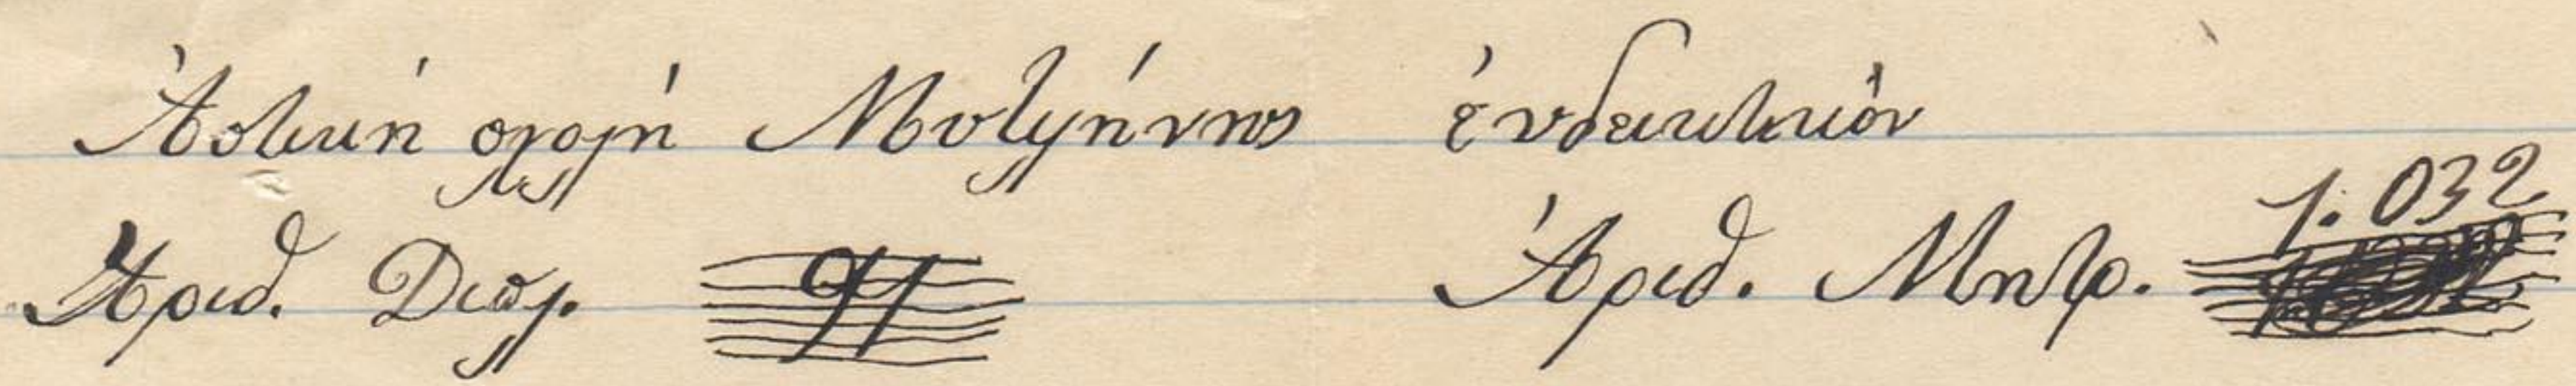 Ἀστική σχολή Μυτιλήνης ἐνδεικτικόν
Ἀριθ. Διπλ. 91 Ἀριθ. Μητρ. 1.032